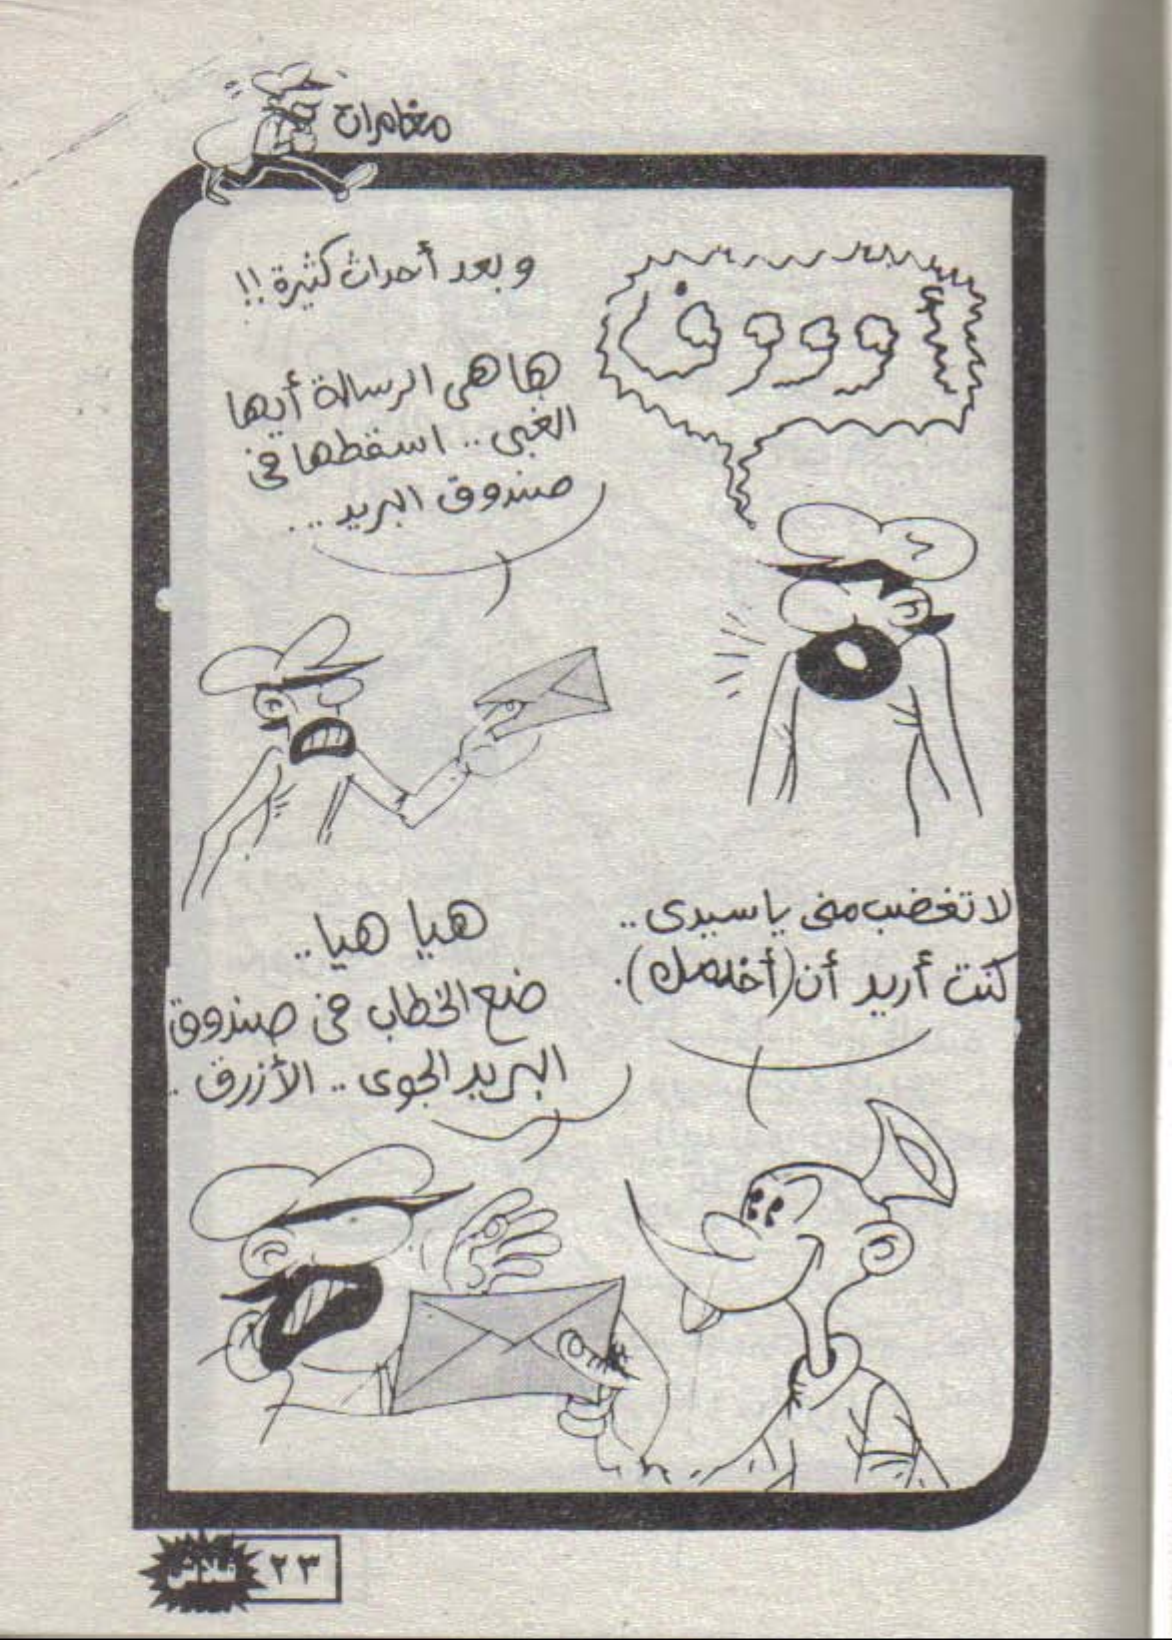 مغامرات
أووووف
وبعد أحداث كثيرة !!
ها هى الرسالة أيها
الغبى .. اسقطها فى
صندوق البريد ...
لا تغضب منى يا سيدى ..
كنت أريد أن (أخلصك).
هيا هيا ..
ضع الخطاب فى صندوق
البريد الجوى .. الأزرق ..
٢٣
فلاش